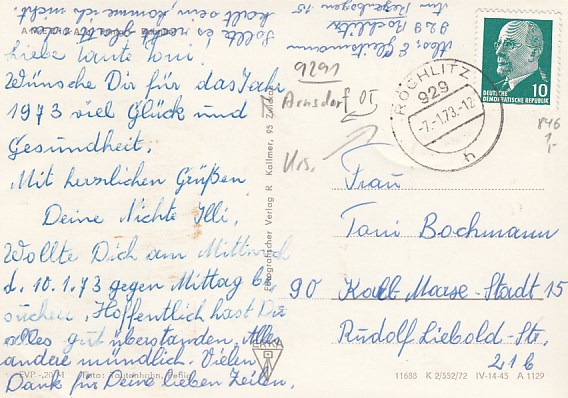 Liebe Tante Toni.
Wünsche Dir für das Jahr
1973 viel Glück und
Gesundheit.
Mit herzlichen Grüßen
Deine Nichte Illi.
Wollte Dich am Mittwoch
d. 10.1.73 gegen Mittag be
suchen. Hoffentlich hast Du
alles gut überstanden. Alles
andere mündlich. Vielen
Dank für Deine lieben Zeilen.
Sollte es nicht
kalt sein, komme ich nicht
Abs. E.
929 Rochlitz
Am Regenbogen 15
9291
Arnsdorf OT
RÖCHLITZ
929
-7.-1.73.-12
h
10
DEUTSCHE
DEMOKRATISCHE REPUBLIK
846
1,-
Frau
Toni Bachmann
90 Karl-Marx-Stadt 15
Rudolf Liebold-Str.
21 b
Fotografischer Verlag R. Kallmer, 95 Zwickau
ERKA
EVP -,20 M Foto:
11688 K 2/532/72 IV-14-45 A 1129